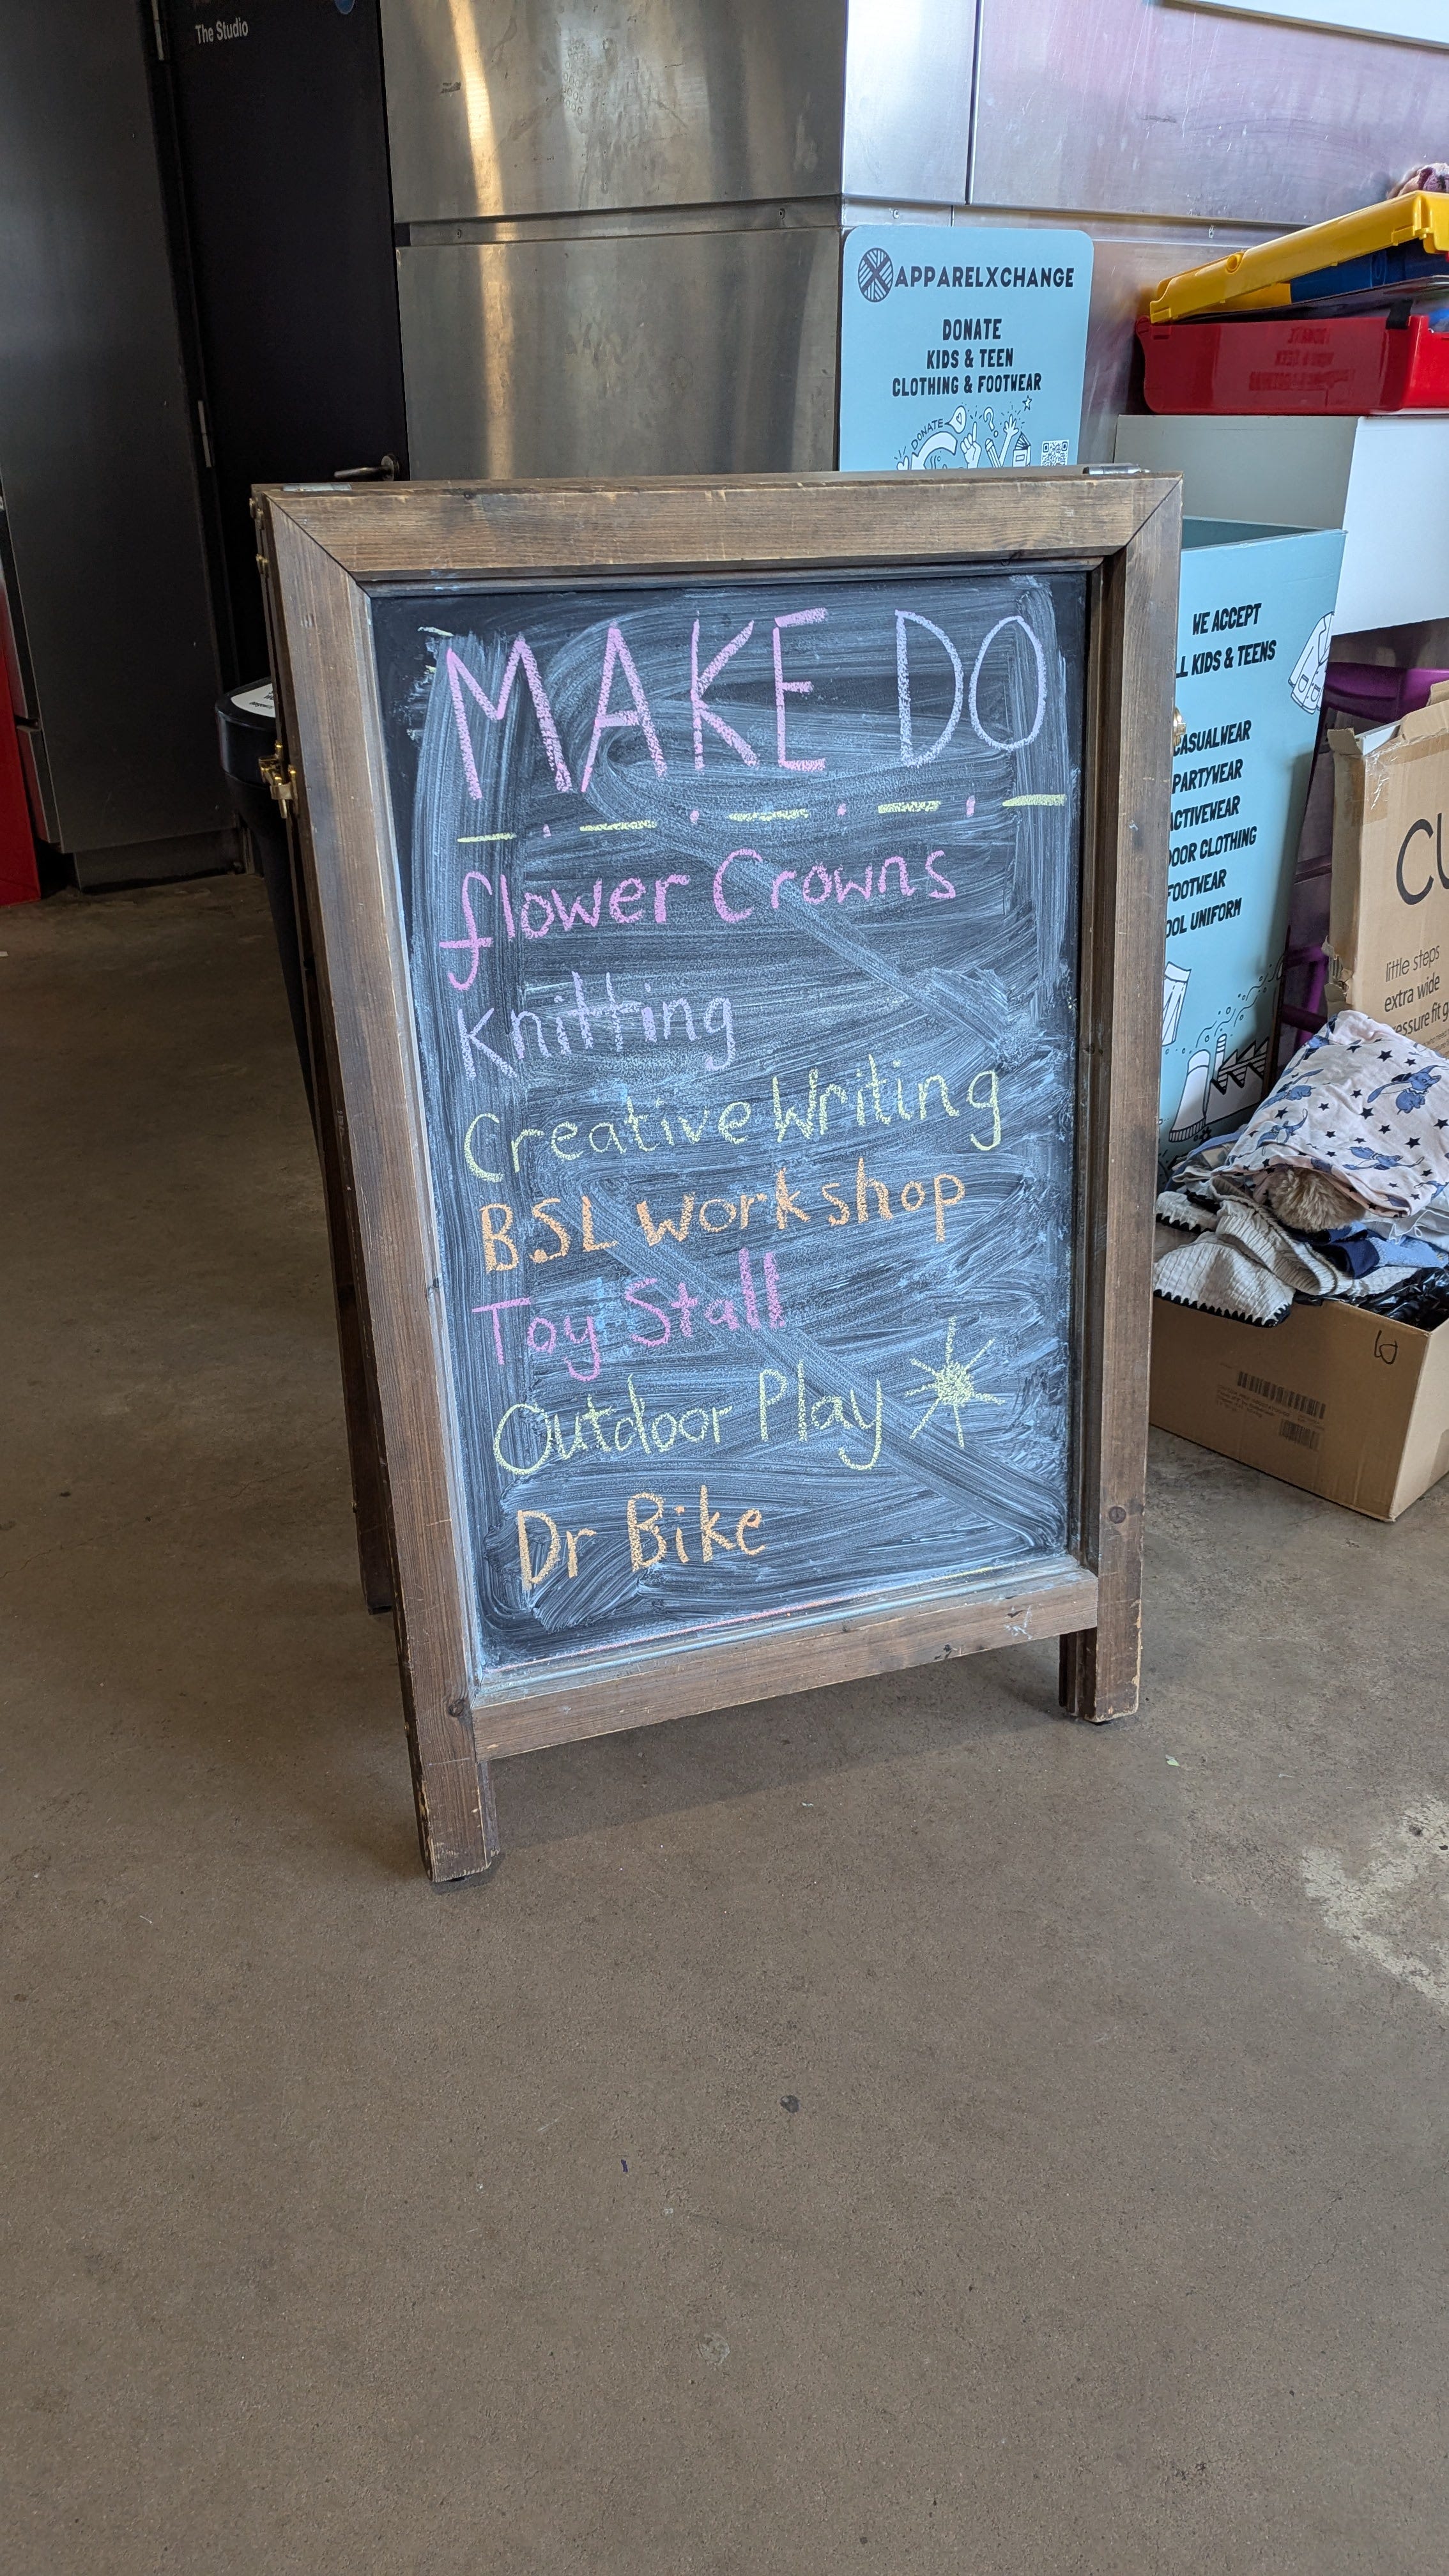 The Studio
APPARELXCHANGE
DONATE
KIDS & TEEN
CLOTHING & FOOTWEAR
DONATE
MAKE DO
flower Crowns
Knitting
Creative Writing
BSL Workshop
Toy Stall
Outdoor Play
Dr Bike
WE ACCEPT
KIDS & TEENS
CASUALWEAR
PARTYWEAR
ACTIVEWEAR
OOR CLOTHING
FOOTWEAR
OOL UNIFORM
CU
little steps
extra wide
essure fit g